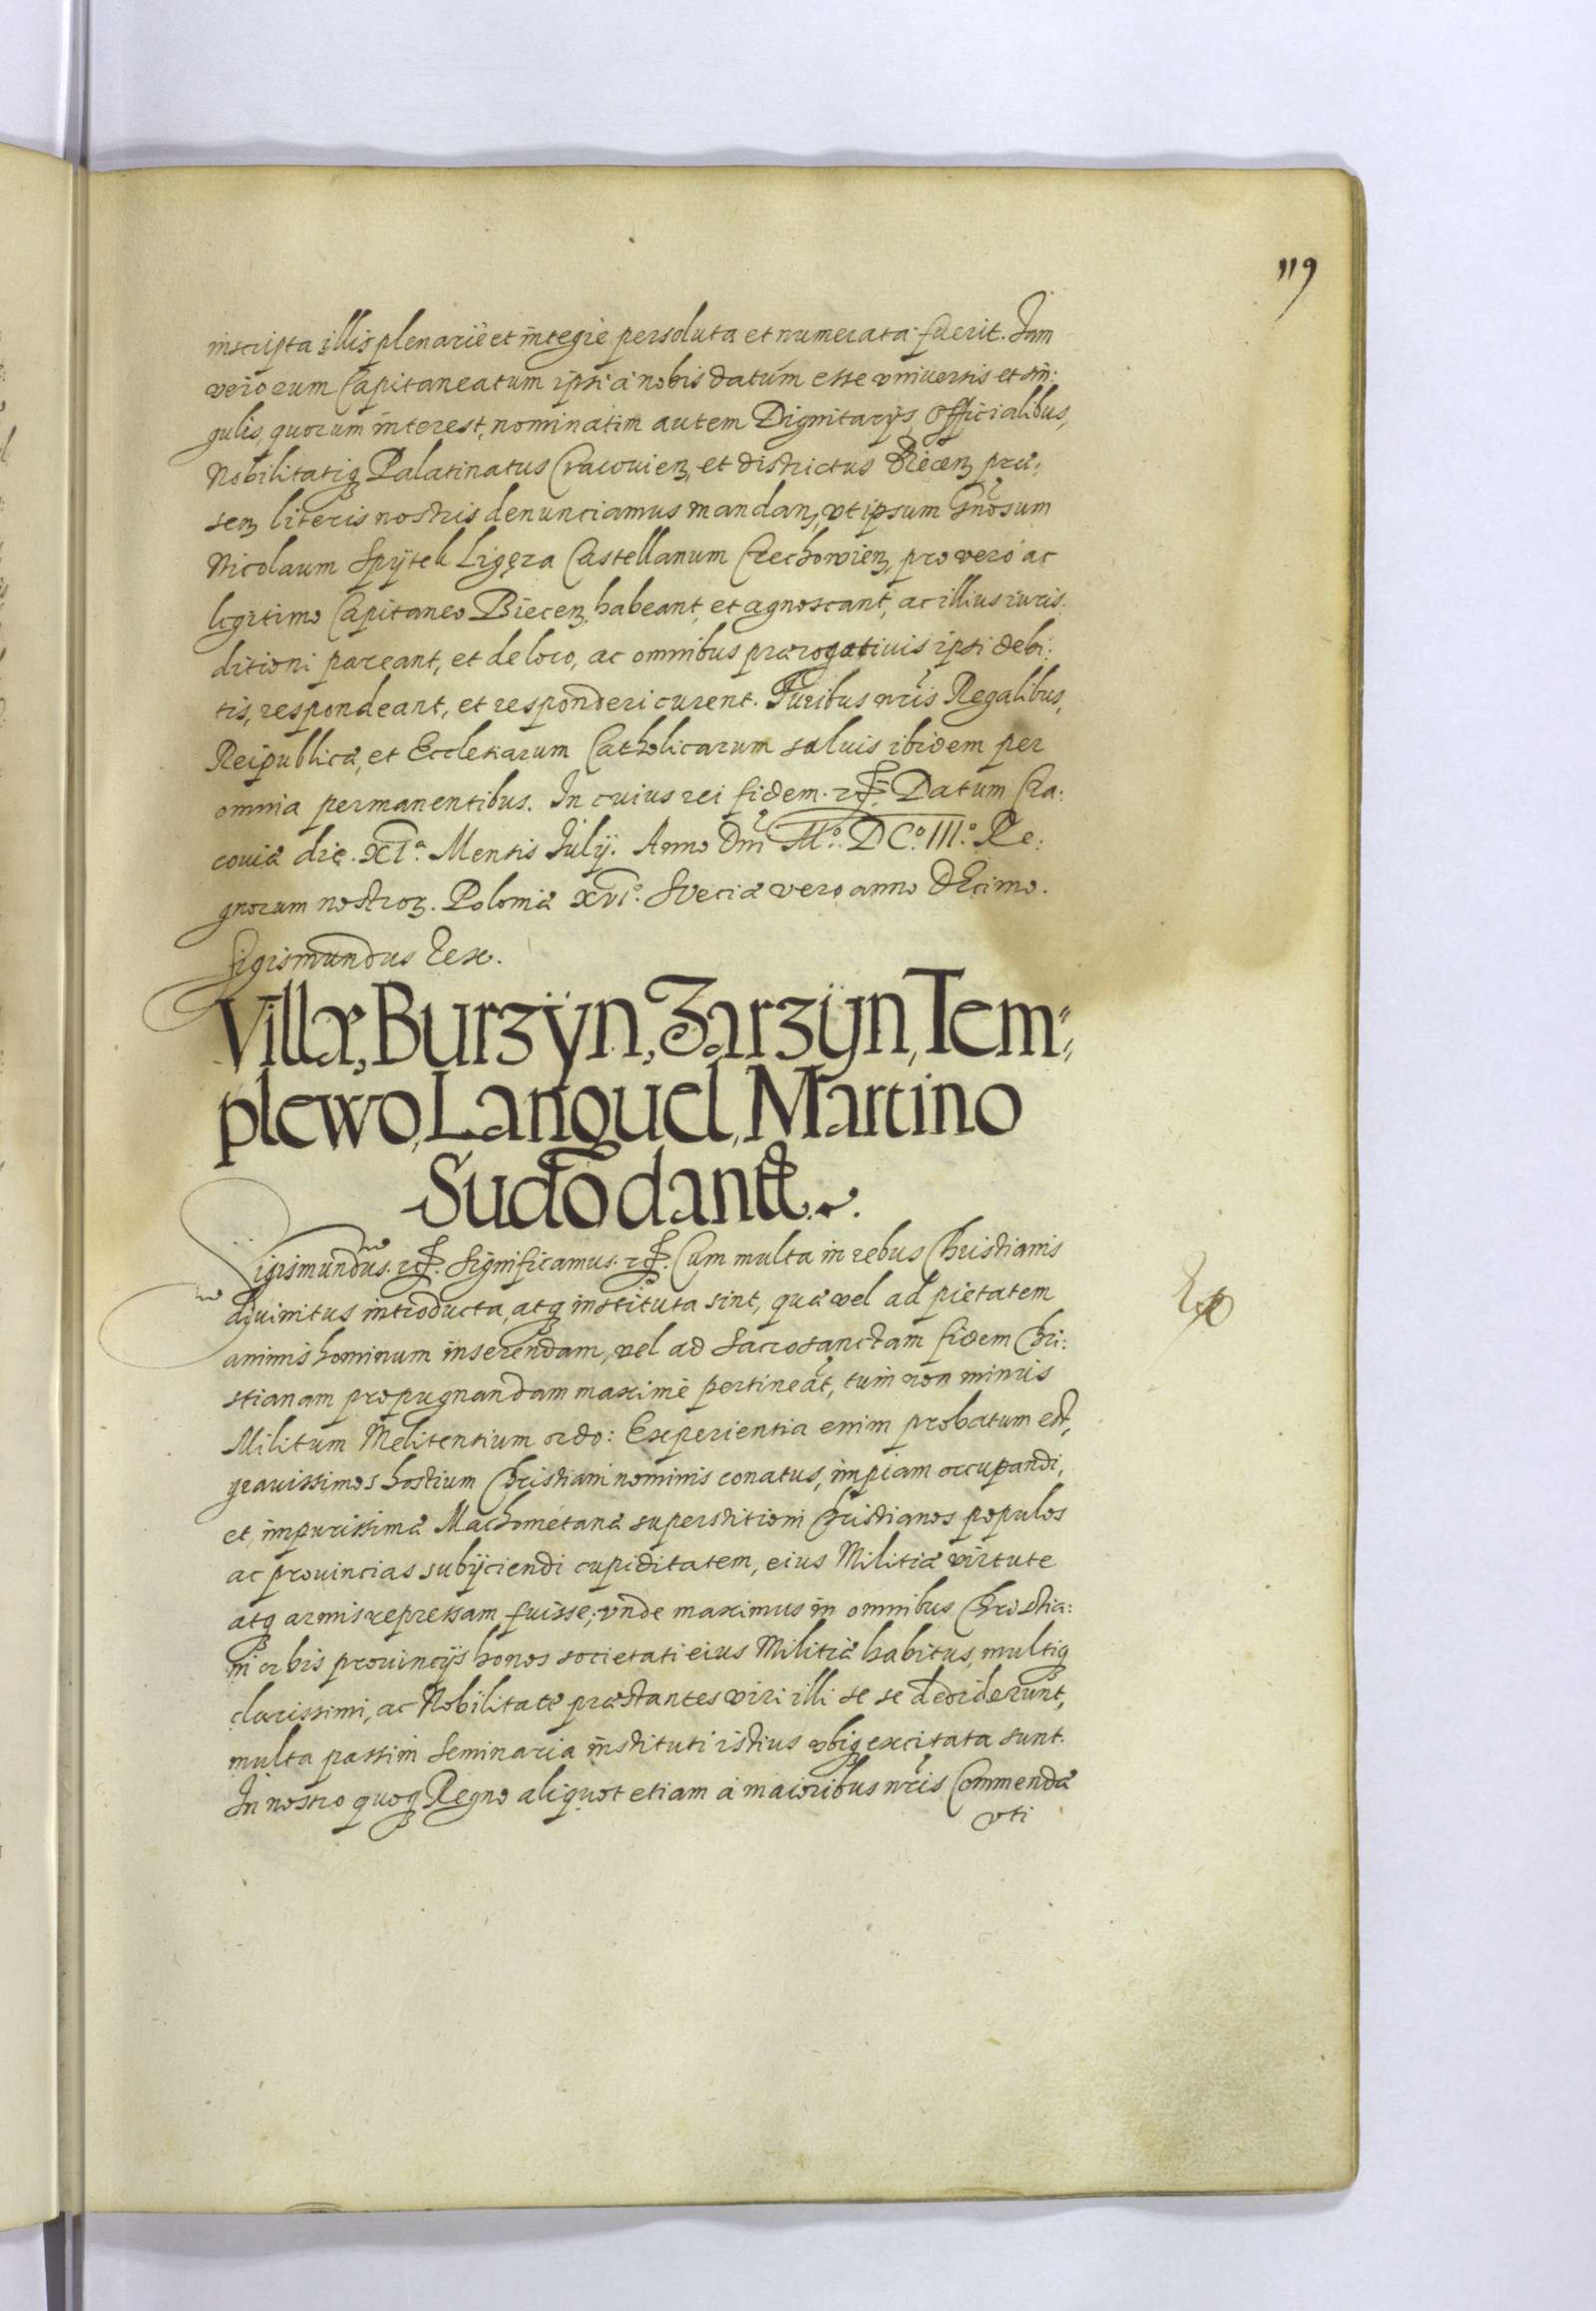 119
inscripta illis plenarie et integre persoluta et numerata fuerit. Iam
vero eum Capitaneatum ipsi a nobis datum esse vniuersis et sin:
gulis, quorum interest, nominatim autem Dignitarijs, Officialibus,
Nobilitatiq Palatinatus Cracouien, et districtus Biecen præ:
sen literis nostris denunciamus mandan, vt ipsum Gnosum
Nicolaum Spÿtek Ligęza Castellanum Czechowien, pro vero ac
legitimo Capitaneo Biecen, habeant, et agnoscant, ac illius iuris:
ditioni pareant, et de loco, ac omnibus prærogatiuis ipsi debi:
tis, respondeant, et responderi curent. Iuribus nris Regalibus,
Reipublicæ, et Ecclesiarum Catholicarum saluis ibidem per
omnia permanentibus. In cuius rei fidem. rc. Datum Cra:
couiæ die. XI.a Mensis Iulij. Anno Dni M.o DC.o III.o Re:
gnorum nostroꝝ. Poloniæ XVI.o Sueciæ vero anno decimo.
Sigismundus Rex.
Villæ, Burzÿn, Zarzÿn, Tem⸗
plewo, Langvel, Martino
Sudo dantr.
Sigismundus. rc. Significamus. rc. Cum multa in rebus Christianis
diuinitus introducta, atq instituta sint, quæ vel ad pietatem
animis hominum inserendam, vel ad Sacrosanctam fidem Chri:
stianam propugnandam maxime pertineat, tum non minus
Militum Melitensium ordo: Experientia enim probatum est,
grauissimos hostium Christiani nominis conatus, impiam occupandi,
et, impurissimæ Machometanæ superstitioni Christianos populos
ac prouincias subijciendi cupiditatem, eius Militiæ virtute
atq armis repressam fuisse; vnde maximus in omnibus Christia:
ni orbis prouincijs honos societati eius Militiæ habitus, multiq
clarissimi, ac Nobilitate præstantes viri illi se se dediderunt,
multa passim Seminaria instituti istius vbiq excitata sunt.
In nostro quoq Regno aliquot etiam a maioribus nris Commendæ
vti